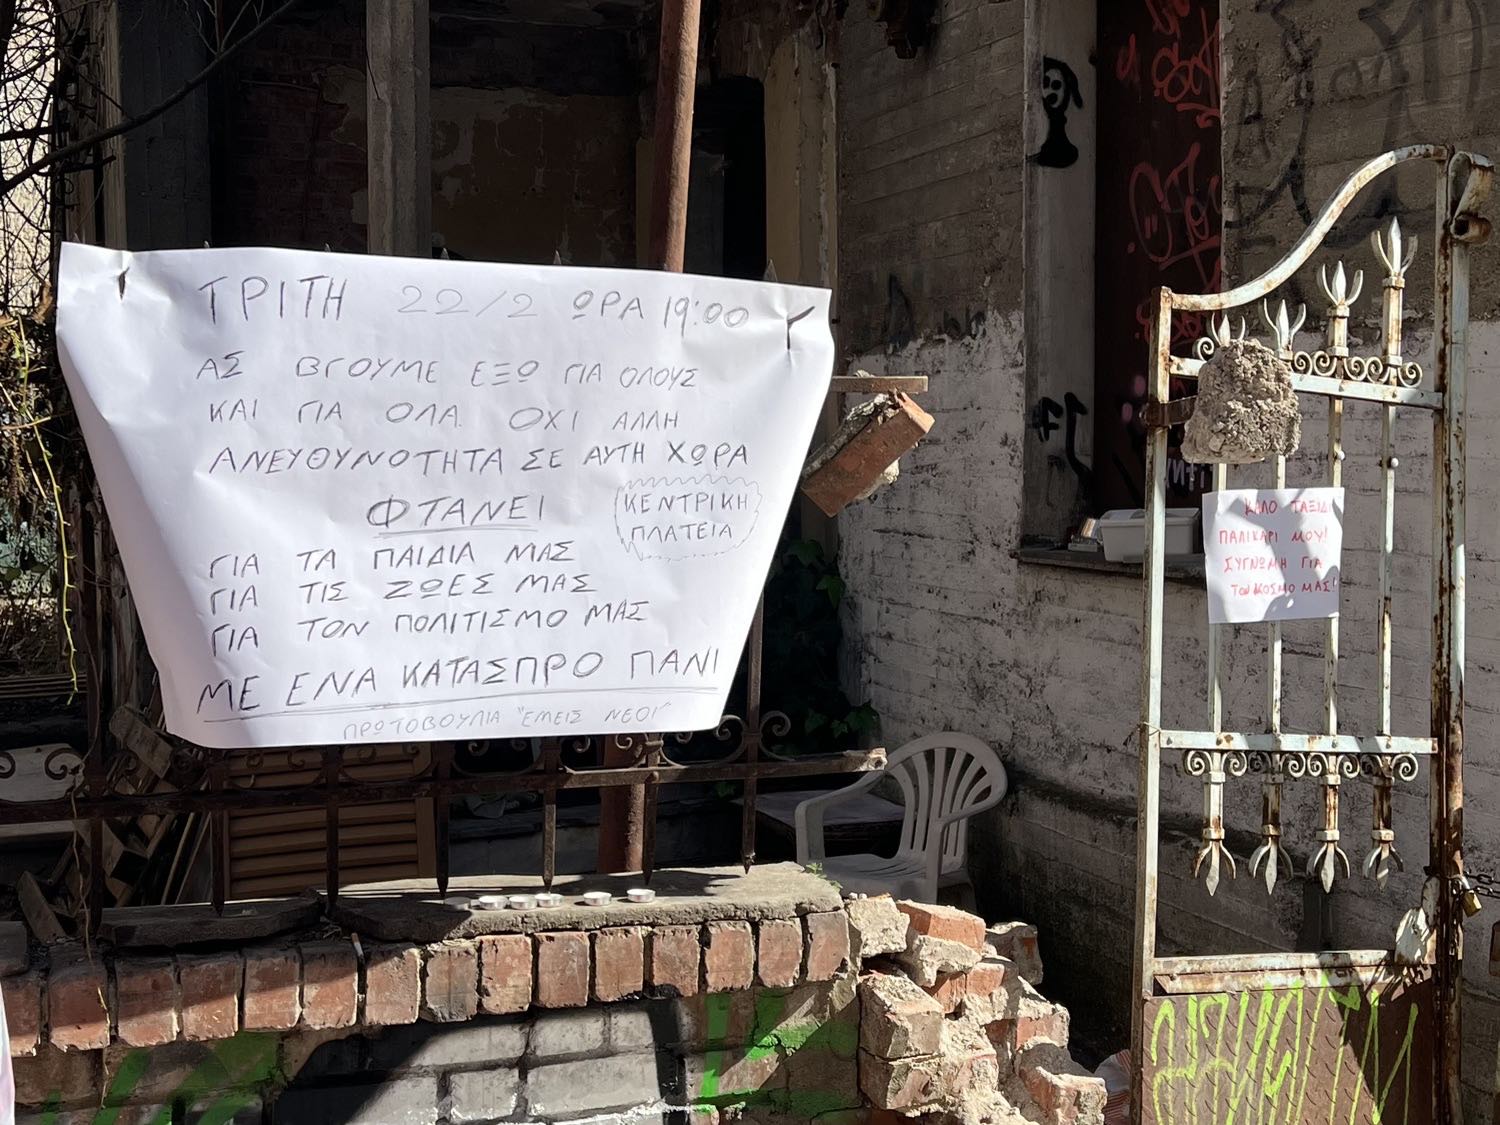 ΤΡΙΤΗ 22/2 ΩΡΑ 19:00
ΑΣ ΒΓΟΥΜΕ ΕΞΩ ΓΙΑ ΟΛΟΥΣ
ΚΑΙ ΓΙΑ ΟΛΑ. ΟΧΙ ΑΛΛΗ
ΑΝΕΥΘΥΝΟΤΗΤΑ ΣΕ ΑΥΤΗ ΧΩΡΑ
ΦΤΑΝΕΙ
ΚΕΝΤΡΙΚΗ
ΠΛΑΤΕΙΑ
ΓΙΑ ΤΑ ΠΑΙΔΙΑ ΜΑΣ
ΓΙΑ ΤΙΣ ΖΩΕΣ ΜΑΣ
ΓΙΑ ΤΟΝ ΠΟΛΙΤΙΣΜΟ ΜΑΣ
ΜΕ ΕΝΑ ΚΑΤΑΣΠΡΟ ΠΑΝΙ
ΠΡΩΤΟΒΟΥΛΙΑ "ΕΜΕΙΣ ΝΕΟΙ"
ΚΑΛΟ ΤΑΞΙΔΙ
ΠΑΛΙΚΑΡΙ ΜΟΥ!
ΣΥΓΝΩΜΗ ΓΙΑ
ΤΟΝ ΚΟΣΜΟ ΜΑΣ!